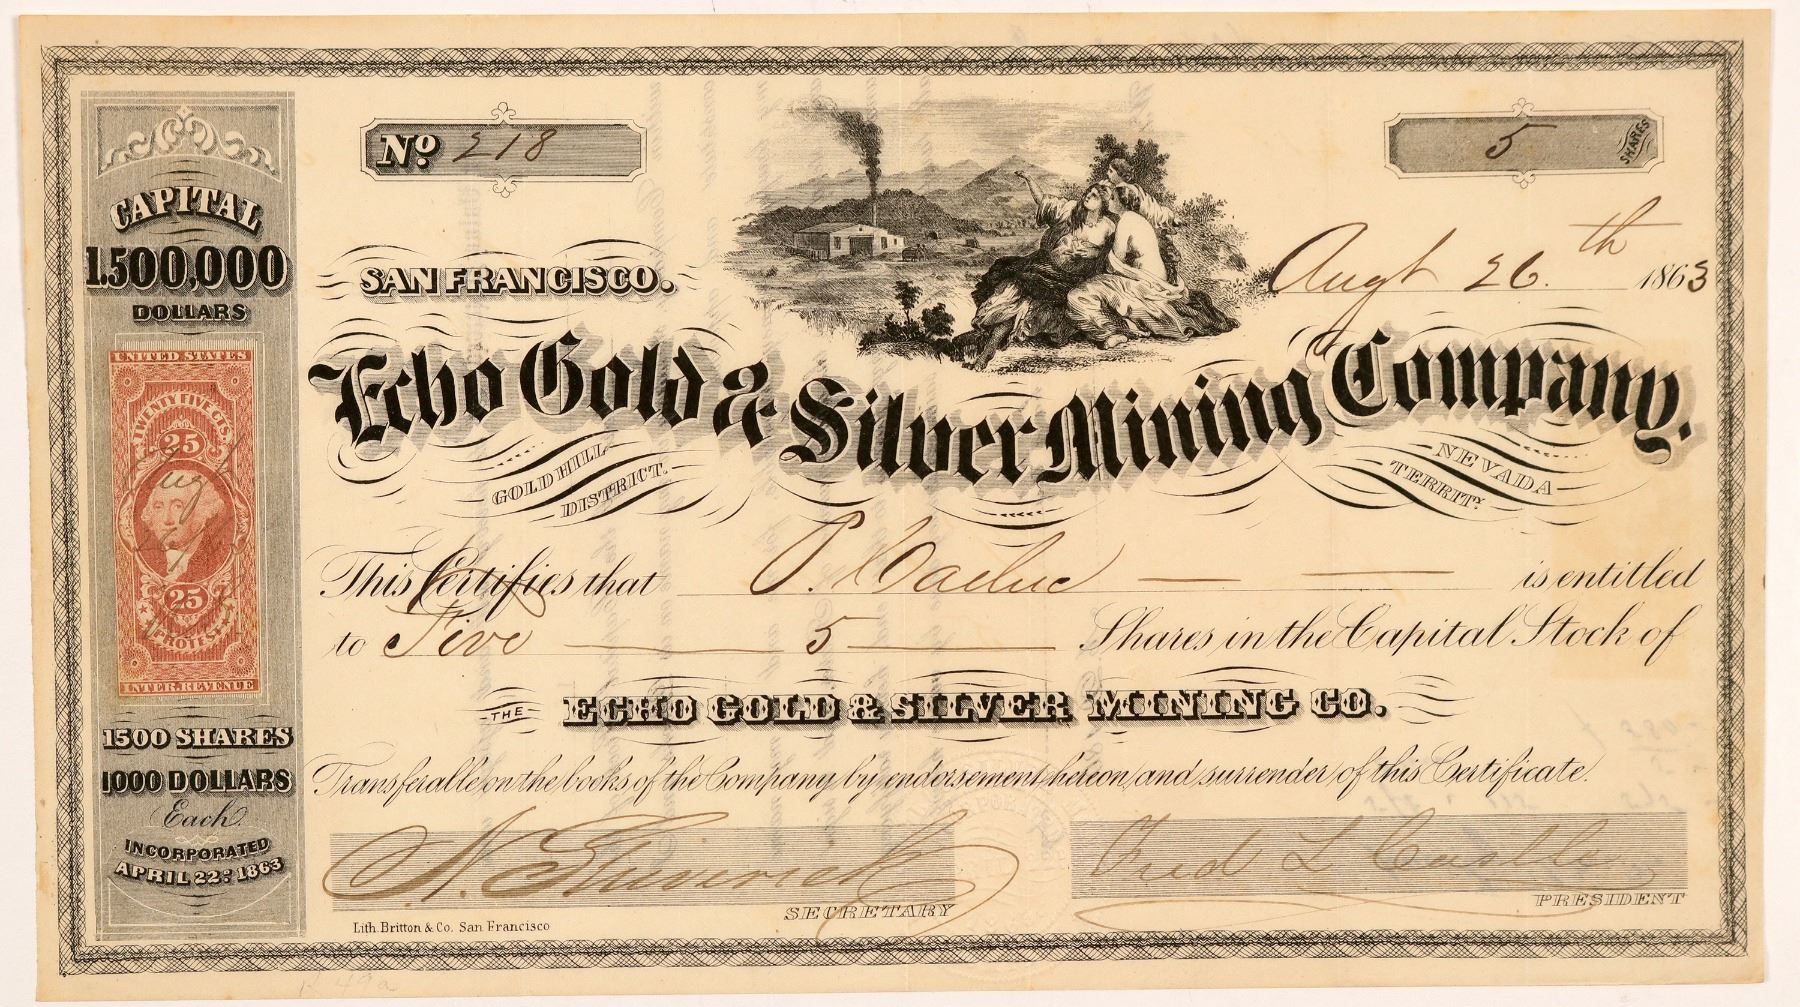 No 218
5 SHARES
CAPITAL
1.500,000
DOLLARS
SAN FRANCISCO.
Augt 26.th 1863
UNITED STATES
TWENTY FIVE CTS.
25
25
PROTEST
INTER. REVENUE
Echo Gold & Silver Mining Company.
GOLD HILL
DISTRICT.
NEVADA
TERRITY.
This Certifies that P. is entitled
to Five 5 Shares in the Capital Stock of
THE ECHO GOLD & SILVER MINING CO.
Transferable on the books of the Company by endorsement hereon and surrender of this Certificate.
1500 SHARES
1000 DOLLARS
Each.
INCORPORATED
APRIL 22: 1863
N.
SECRETARY
Fred L Castle
PRESIDENT
Lith. Britton & Co. San Francisco